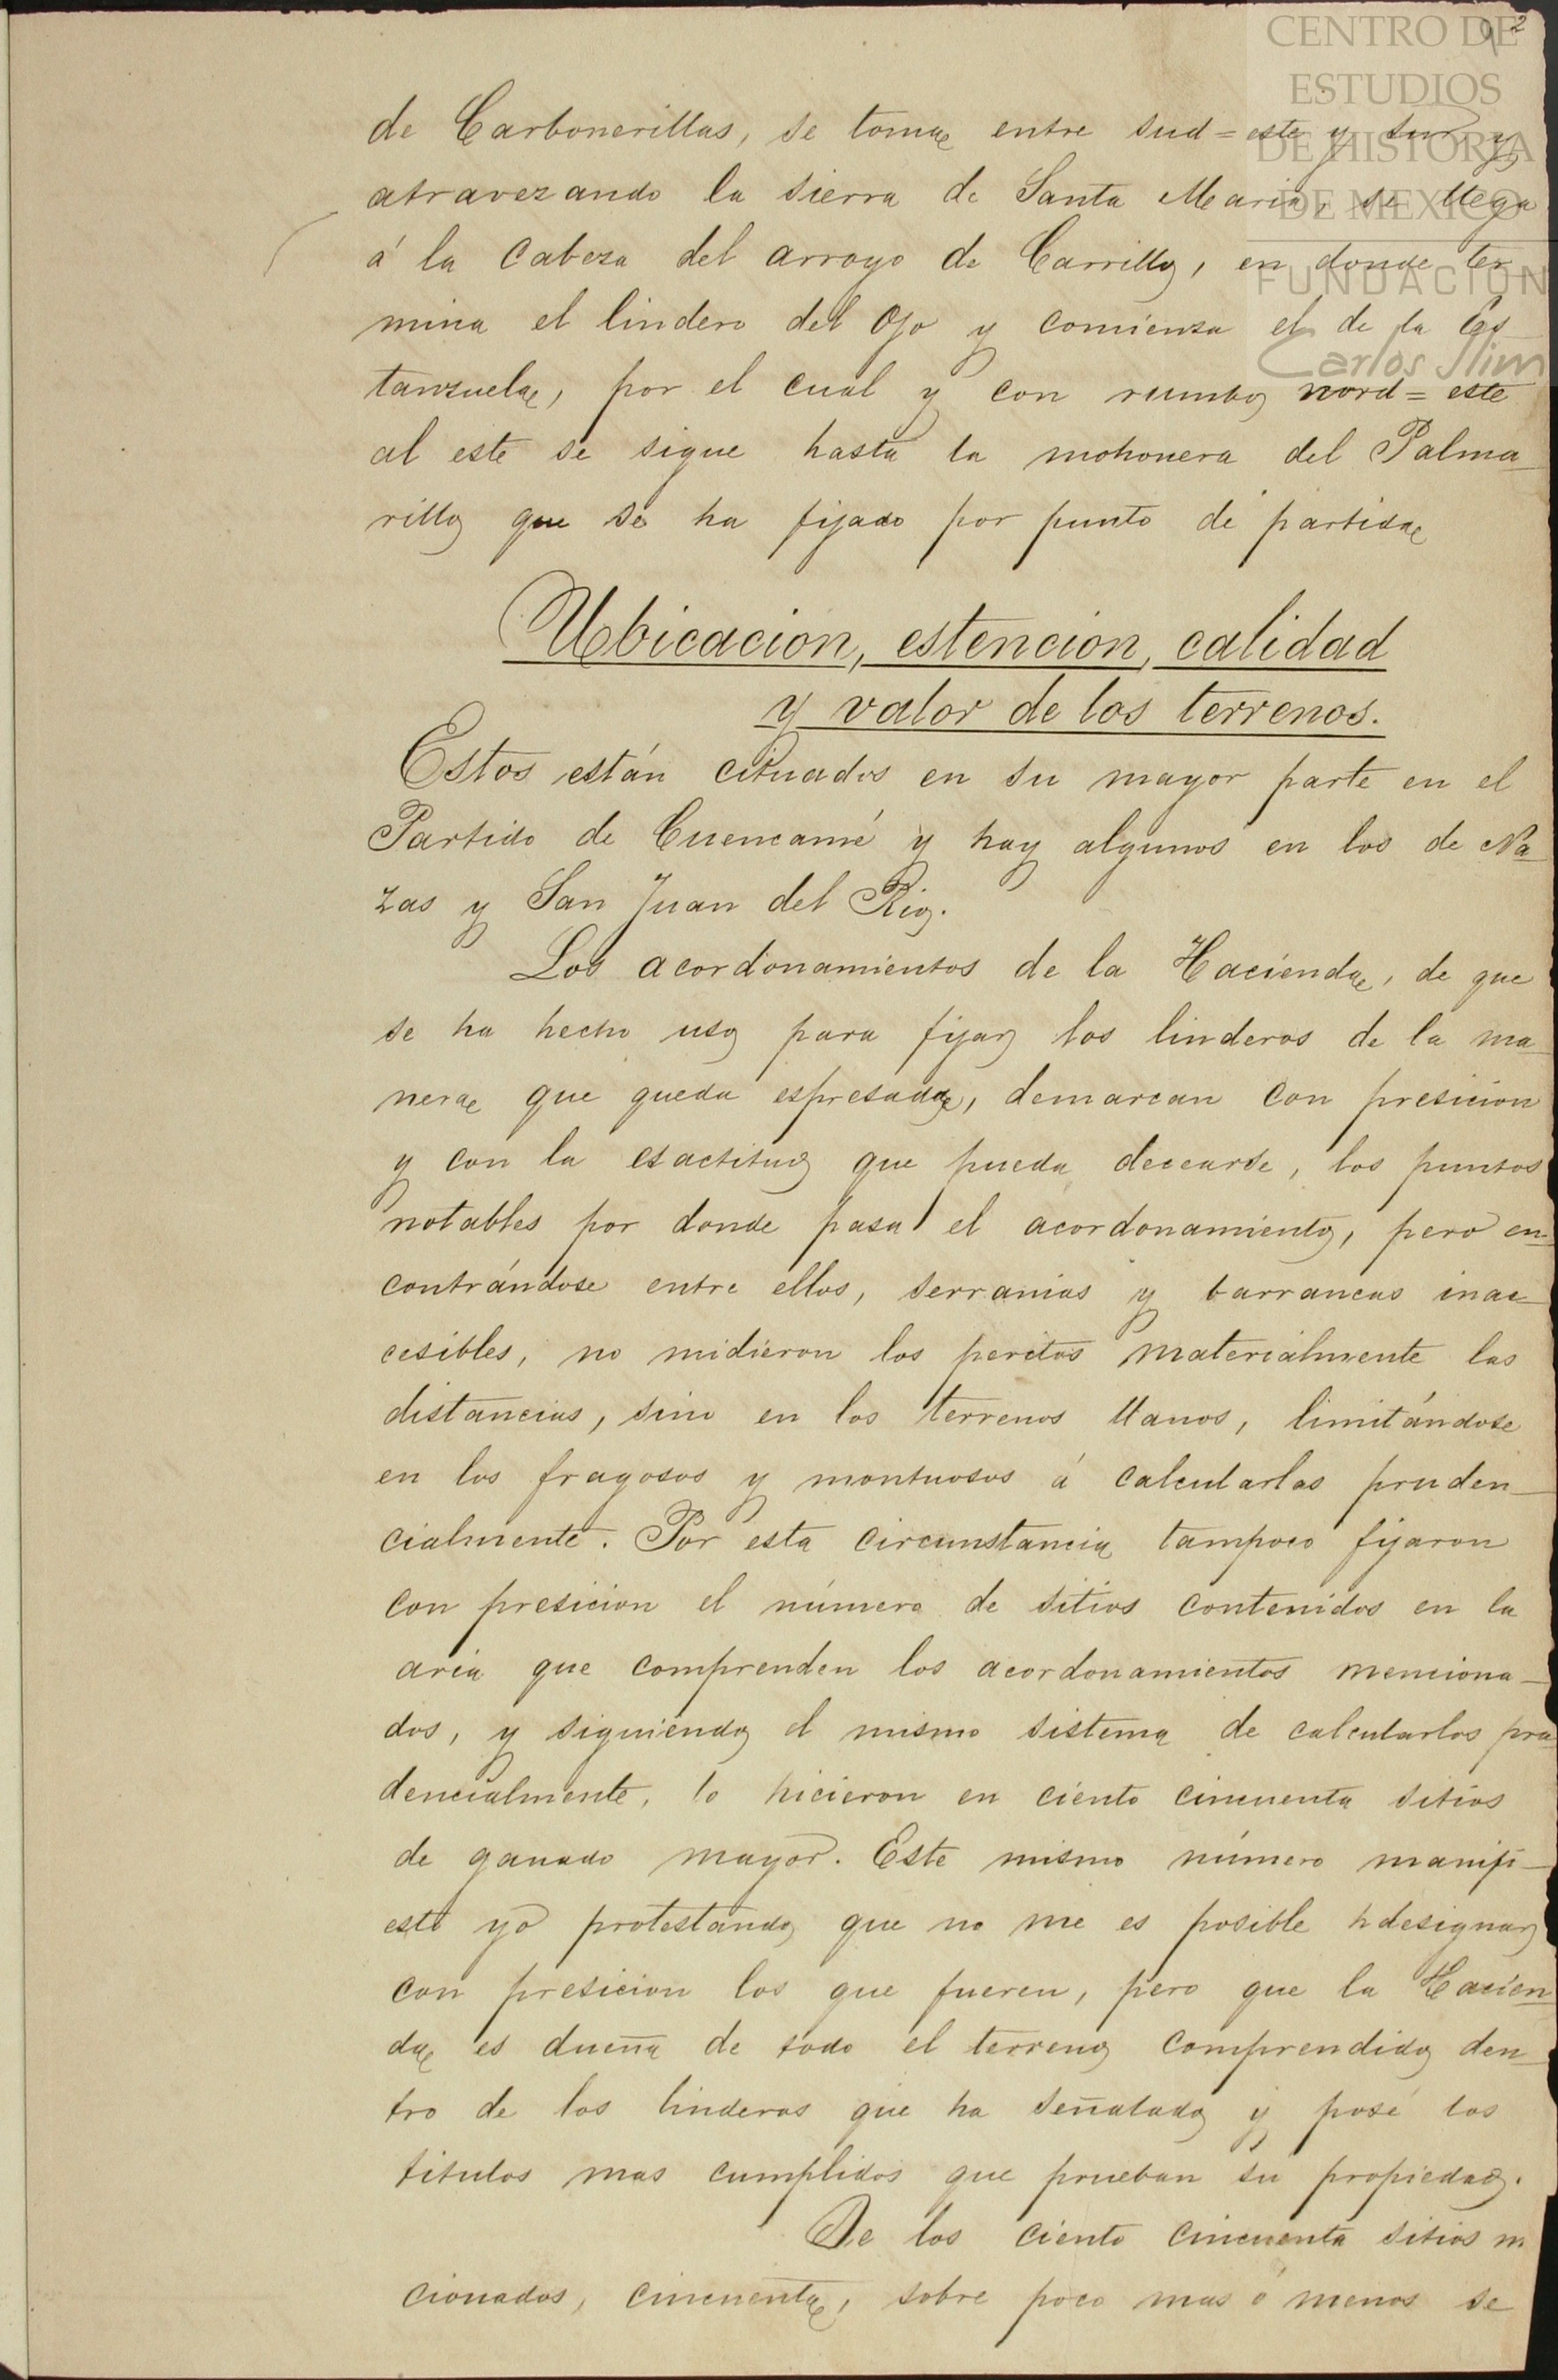 2
CENTRO DE
ESTUDIOS
DE HISTORIA
DE MEXICO
FUNDACION
Carlos Slim
de Carbonerillas, se toma entre sud=este y sur y
atravezando la sierra de Santa Maria, se llega
á la Cabeza del arroyo de Carrillo, en donde ter
mina el lindero del Ojo y comienza el de la Es
tanzuela, por el cual y con rumbo nord=este
al este se sigue hasta la mohonera del Palma
rillo que se ha fijado por punto de partida
Ubicacion, estencion, calidad
y valor de los terrenos.
Estos están cituados en su mayor parte en el
Partido de Cuencamé y hay algunos en los de Na
zas y San Juan del Rio.
Los acordonamientos de la Hacienda, de que
se ha hecho uso para fijar los linderos de la ma
nera que queda espresada, demarcan con presicion
y con la esactitud que pueda decearse, los puntos
notables por donde pasa el acordonamiento, pero en
contrándose entre ellos, serranias y barrancas inac
cesibles, no midieron los peritos materialmente las
distancias, sino en los terrenos llanos, limitándose
en los fragosos y montuosos á calcularlas pruden
cialmente. Por esta circunstancia tampoco fijaron
con presicion el número de sitios contenidos en la
aria que comprenden los acordonamientos menciona
dos, y siguiendo el mismo sistema de calcularlos pru
dencialmente, lo hicieron en ciento cincuenta sitios
de ganado mayor. Este mismo número manifi
esto yo protestando que no me es posible designar
con presicion los que fueren, pero que la Hacien
da es dueña de todo el terreno comprendido den
tro de los linderos que ha señalado y posé los
titulos mas cumplidos que prueban su propiedad.
De los ciento cincuenta sitios m
cionados, cincuenta, sobre poco mas ó menos se